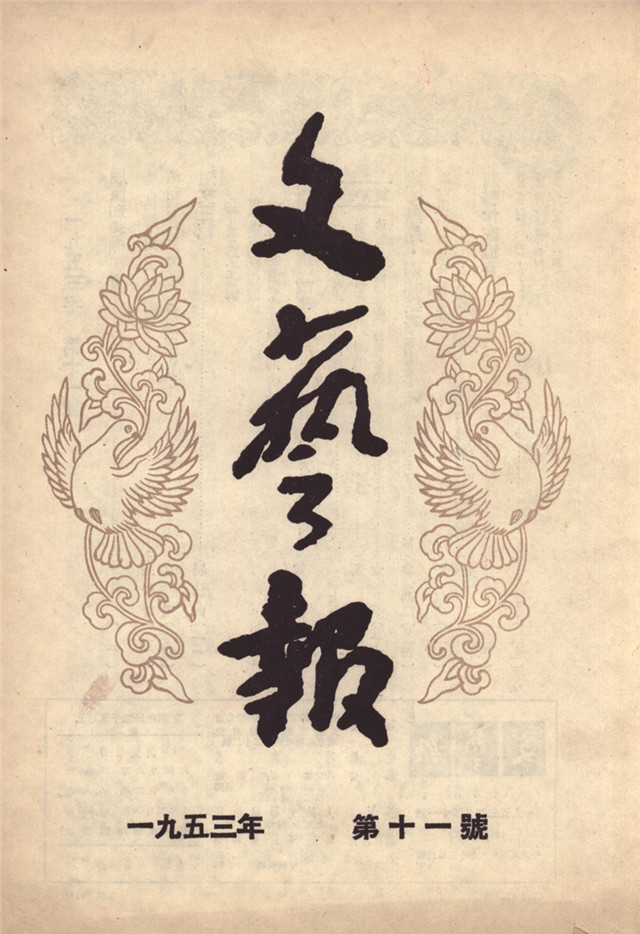 文藝報
一九五三年 第十一號